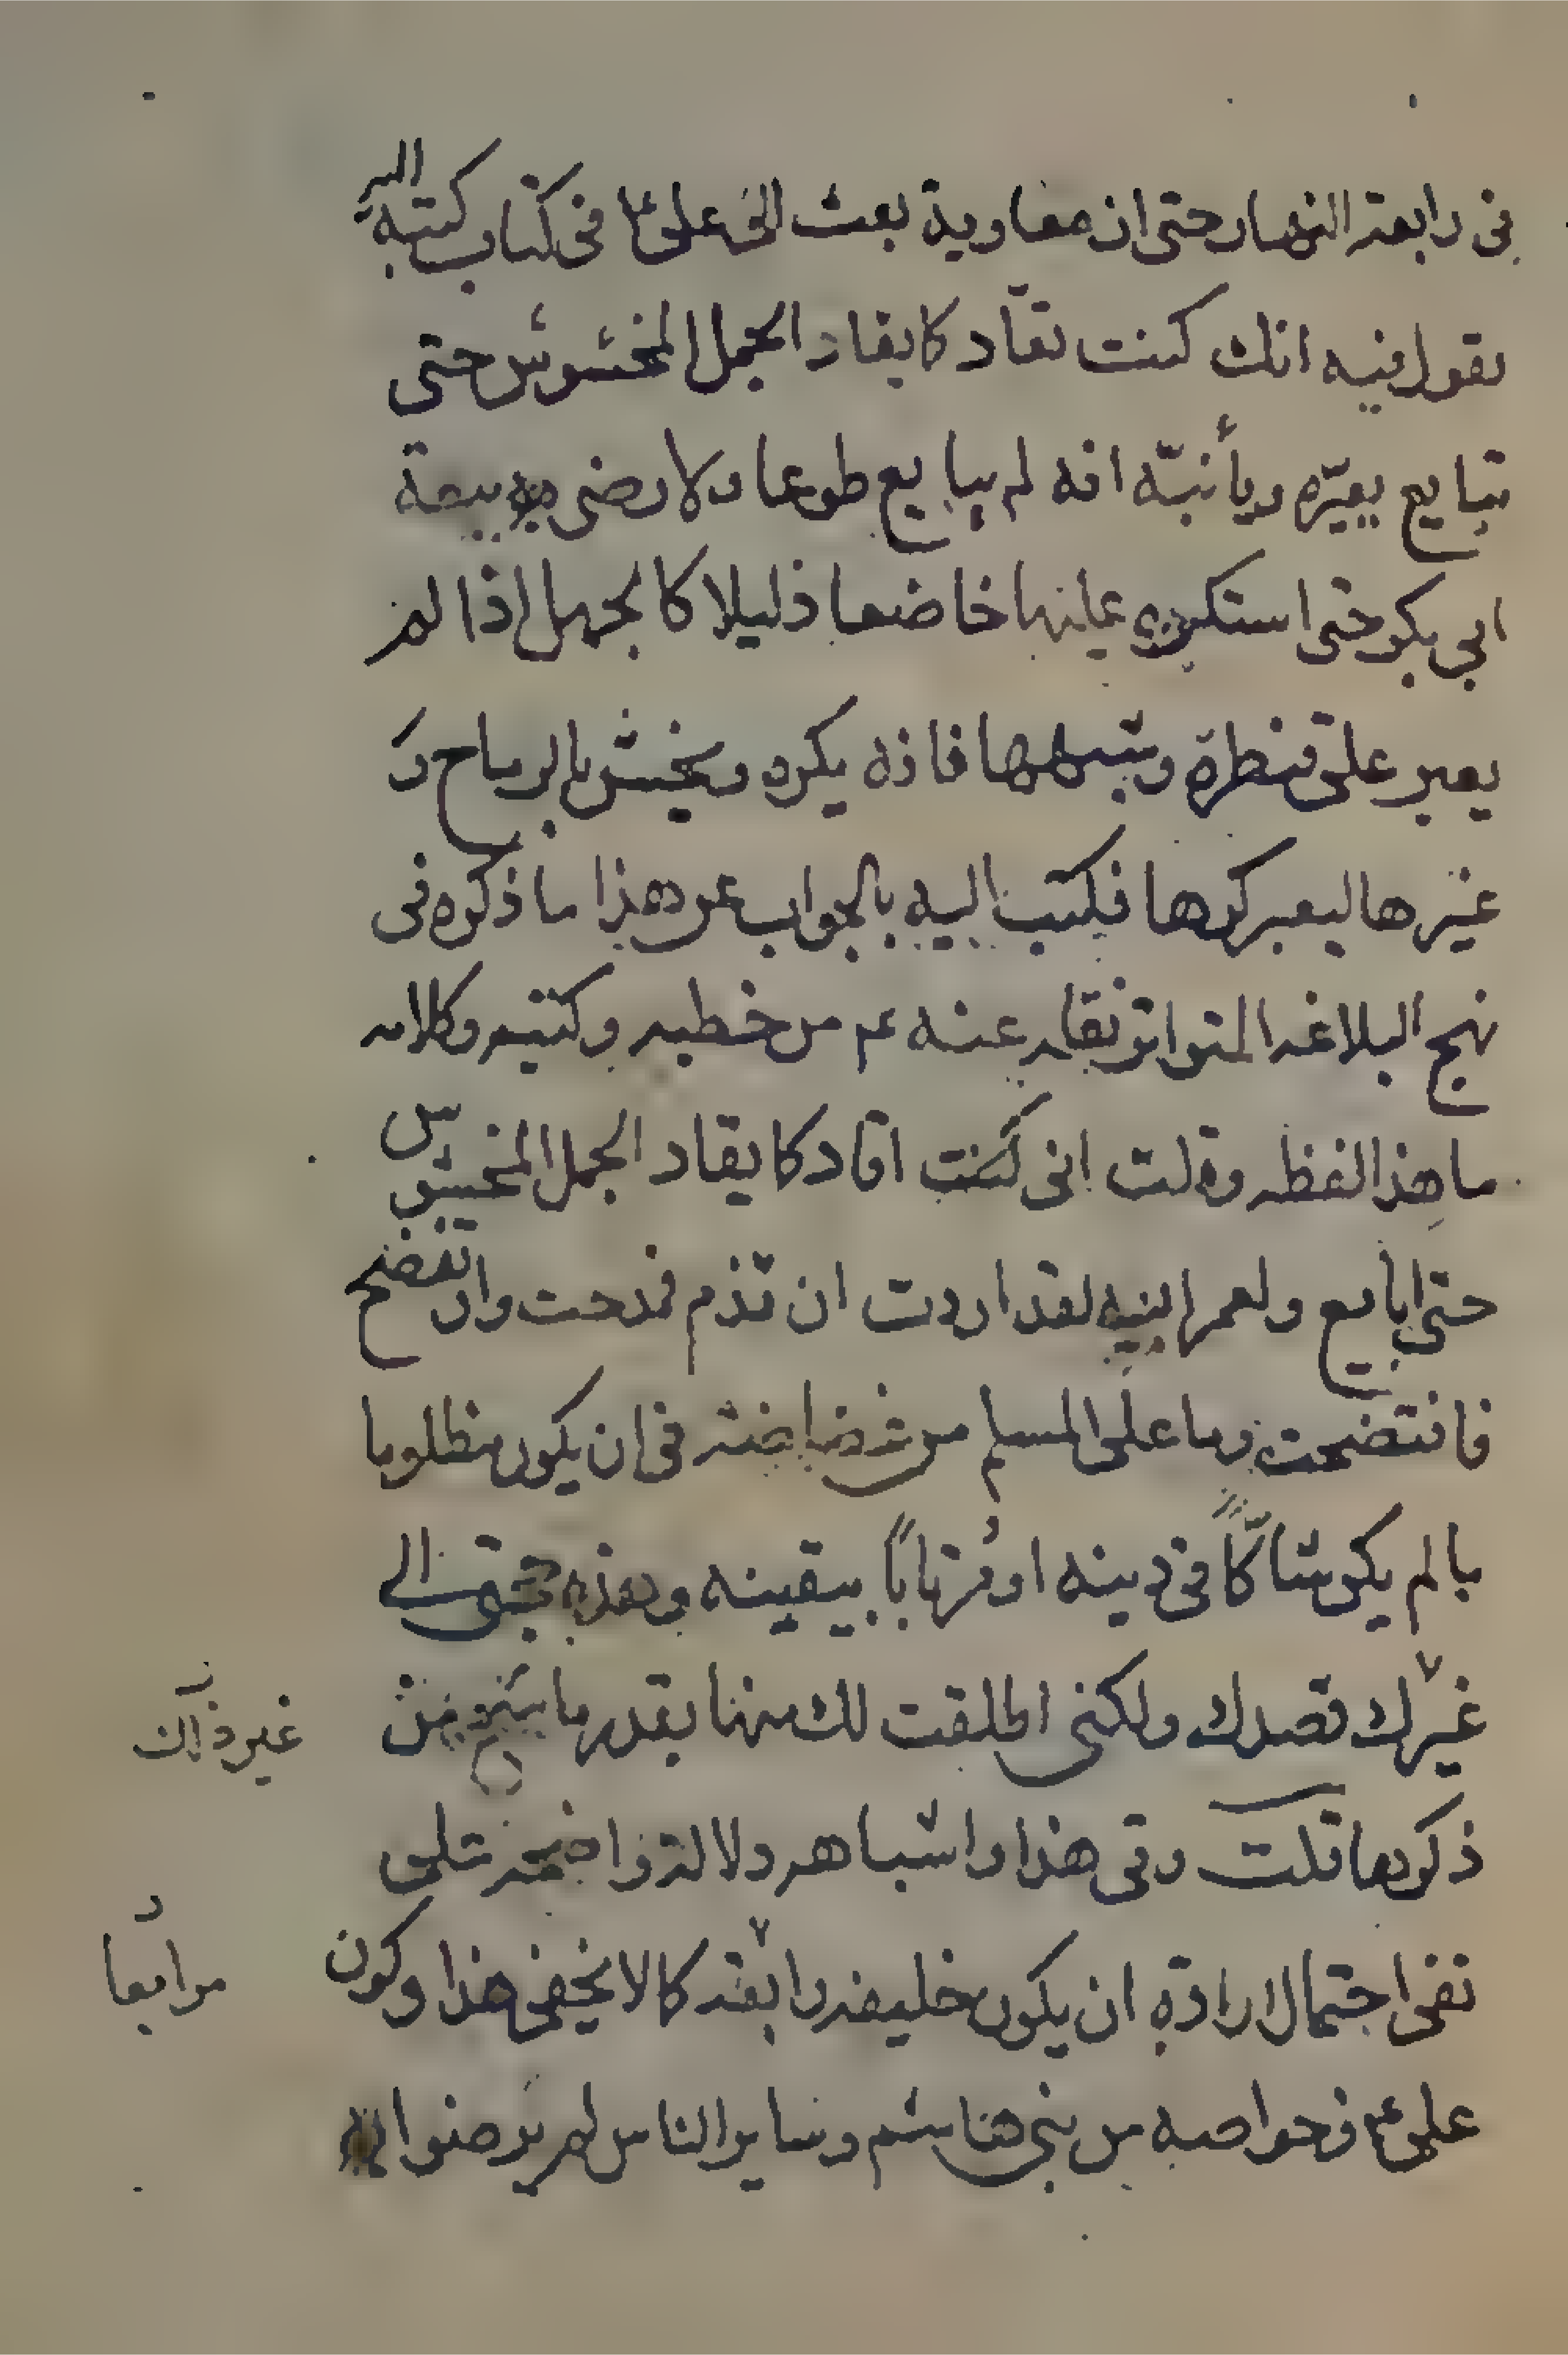 في رابعة النهار حتى ان معاوية بعث الى علي ع في كتاب كتبه اليه
يقول فيه انك كنت تقاد كما يقاد الجمل المخشوش حتى
تبايع يعيّره ويأنبّه انه لم يبايع طوعا ولا رضى منه ببيعة
ابي بكر حتى استكره عليها خاضعا ذليلا كالجمل اذا لم
يعبر على قنطرة وشبهها فانه يكره ويخش بالرماح و
غيرها ليعبر كرها فكتب اليه بالجواب عن هذا ما ذكره في
نهج البلاغه المتواتر نقله عنه عم من خطبه وكتبه وكلامه
ما هذا لفظه وقلت اني كنت اقاد كما يقاد الجمل المخشوش
حتى ابايع ولعمر الله لقد اردت ان تذم فمدحت وان تفضح
فافتضحت وما على المسلم من غضاضة في ان يكون مظلوما
ما لم يكن شاكّاً في دينه او مرتاباً بيقينه وهذه حجتي الى
غيرك قصدك ولكني اطلقت لك منها بقدر ما سنح من
غير ذلك
ذكرها قلت وفي هذا واشباهه دلالة واضحة على
نفي احتمال ارادة ان يكون خليفه رابعه كما لا يخفى هذا وكون
مرابعا
علي ع وخواصه من بني هاشم وساير الناس لم يرضوا